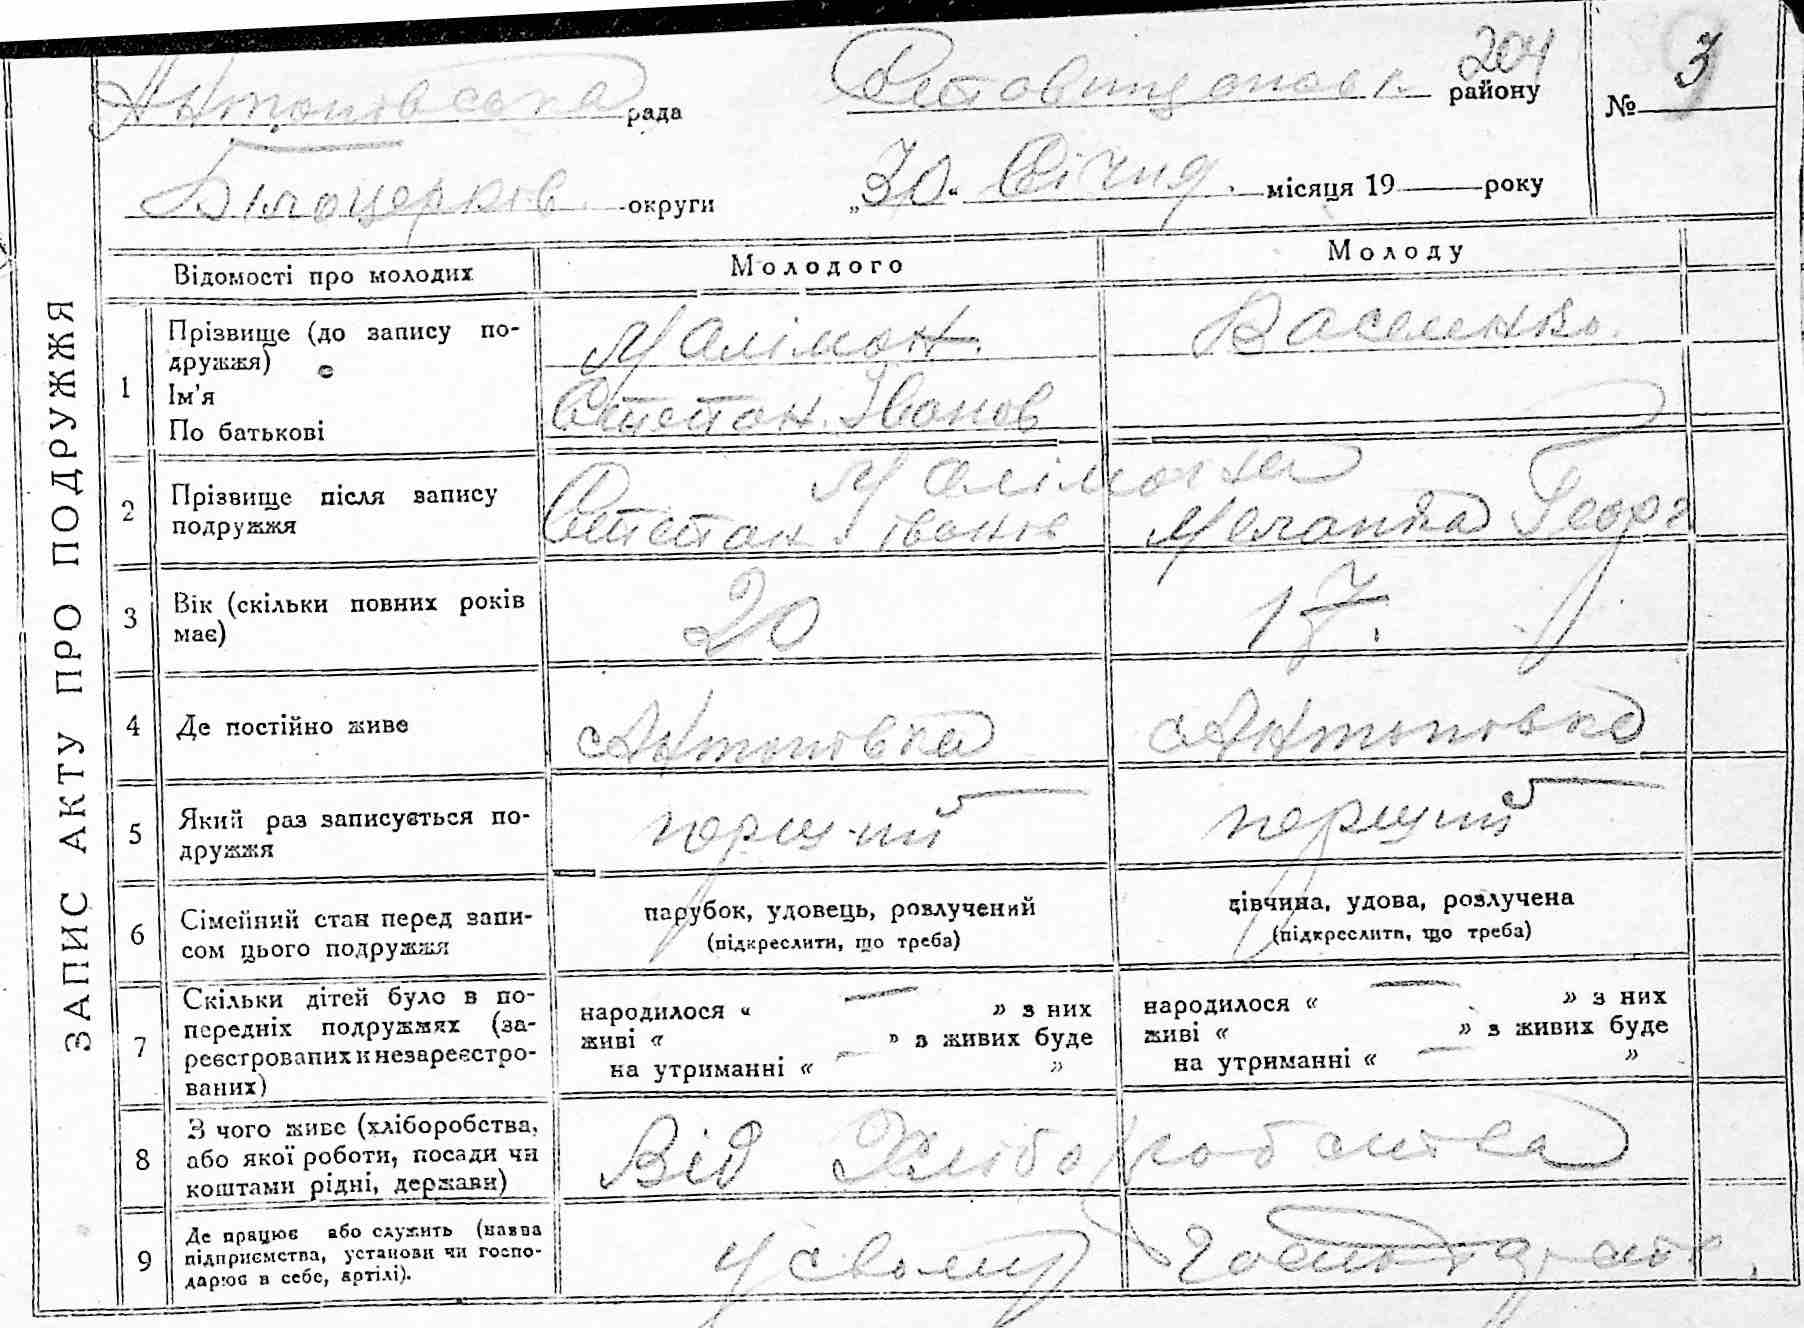 204
Антонівська рада Ставищанськ. району № 3
Білоцерків. округи „30“ Січня місяця 19 року
ЗАПИС АКТУ ПРО ПОДРУЖЖЯ
Відомості про молодих Молодого Молоду
1 Прізвище (до запису по-
дружжя) Малімон. Василенко.
Ім'я
По батькові Степан Іванов
2 Прізвище після запису
подружжя Малімони
Степан Іванів Меланка Георг
3 Вік (скільки повних років
має) 20 17.
4 Де постійно живе с Антонівка с Антонівка
5 Який раз записується по-
дружжя перший перший
6 Сімейний стан перед запи-
сом цього подружжя
парубок, удовець, розлучений
(підкреслити, що треба)
дівчина, удова, розлучена
(підкреслити, що треба)
7 Скільки дітей було в по-
передніх подружжях (за-
реєстрованих и незареєстро-
ваних)
народилося « — » з них
живі « » з живих буде
на утриманні « — »
народилося « — » з них
живі « » з живих буде
на утриманні « — »
8 З чого живе (хліборобства,
або якої роботи, посади чи
коштами рідні, держави)
Від Хліборобства
9 Де працює або служить (назва
підприємства, установи чи госпо-
дарює в себе, артілі).
У свому господарстві.